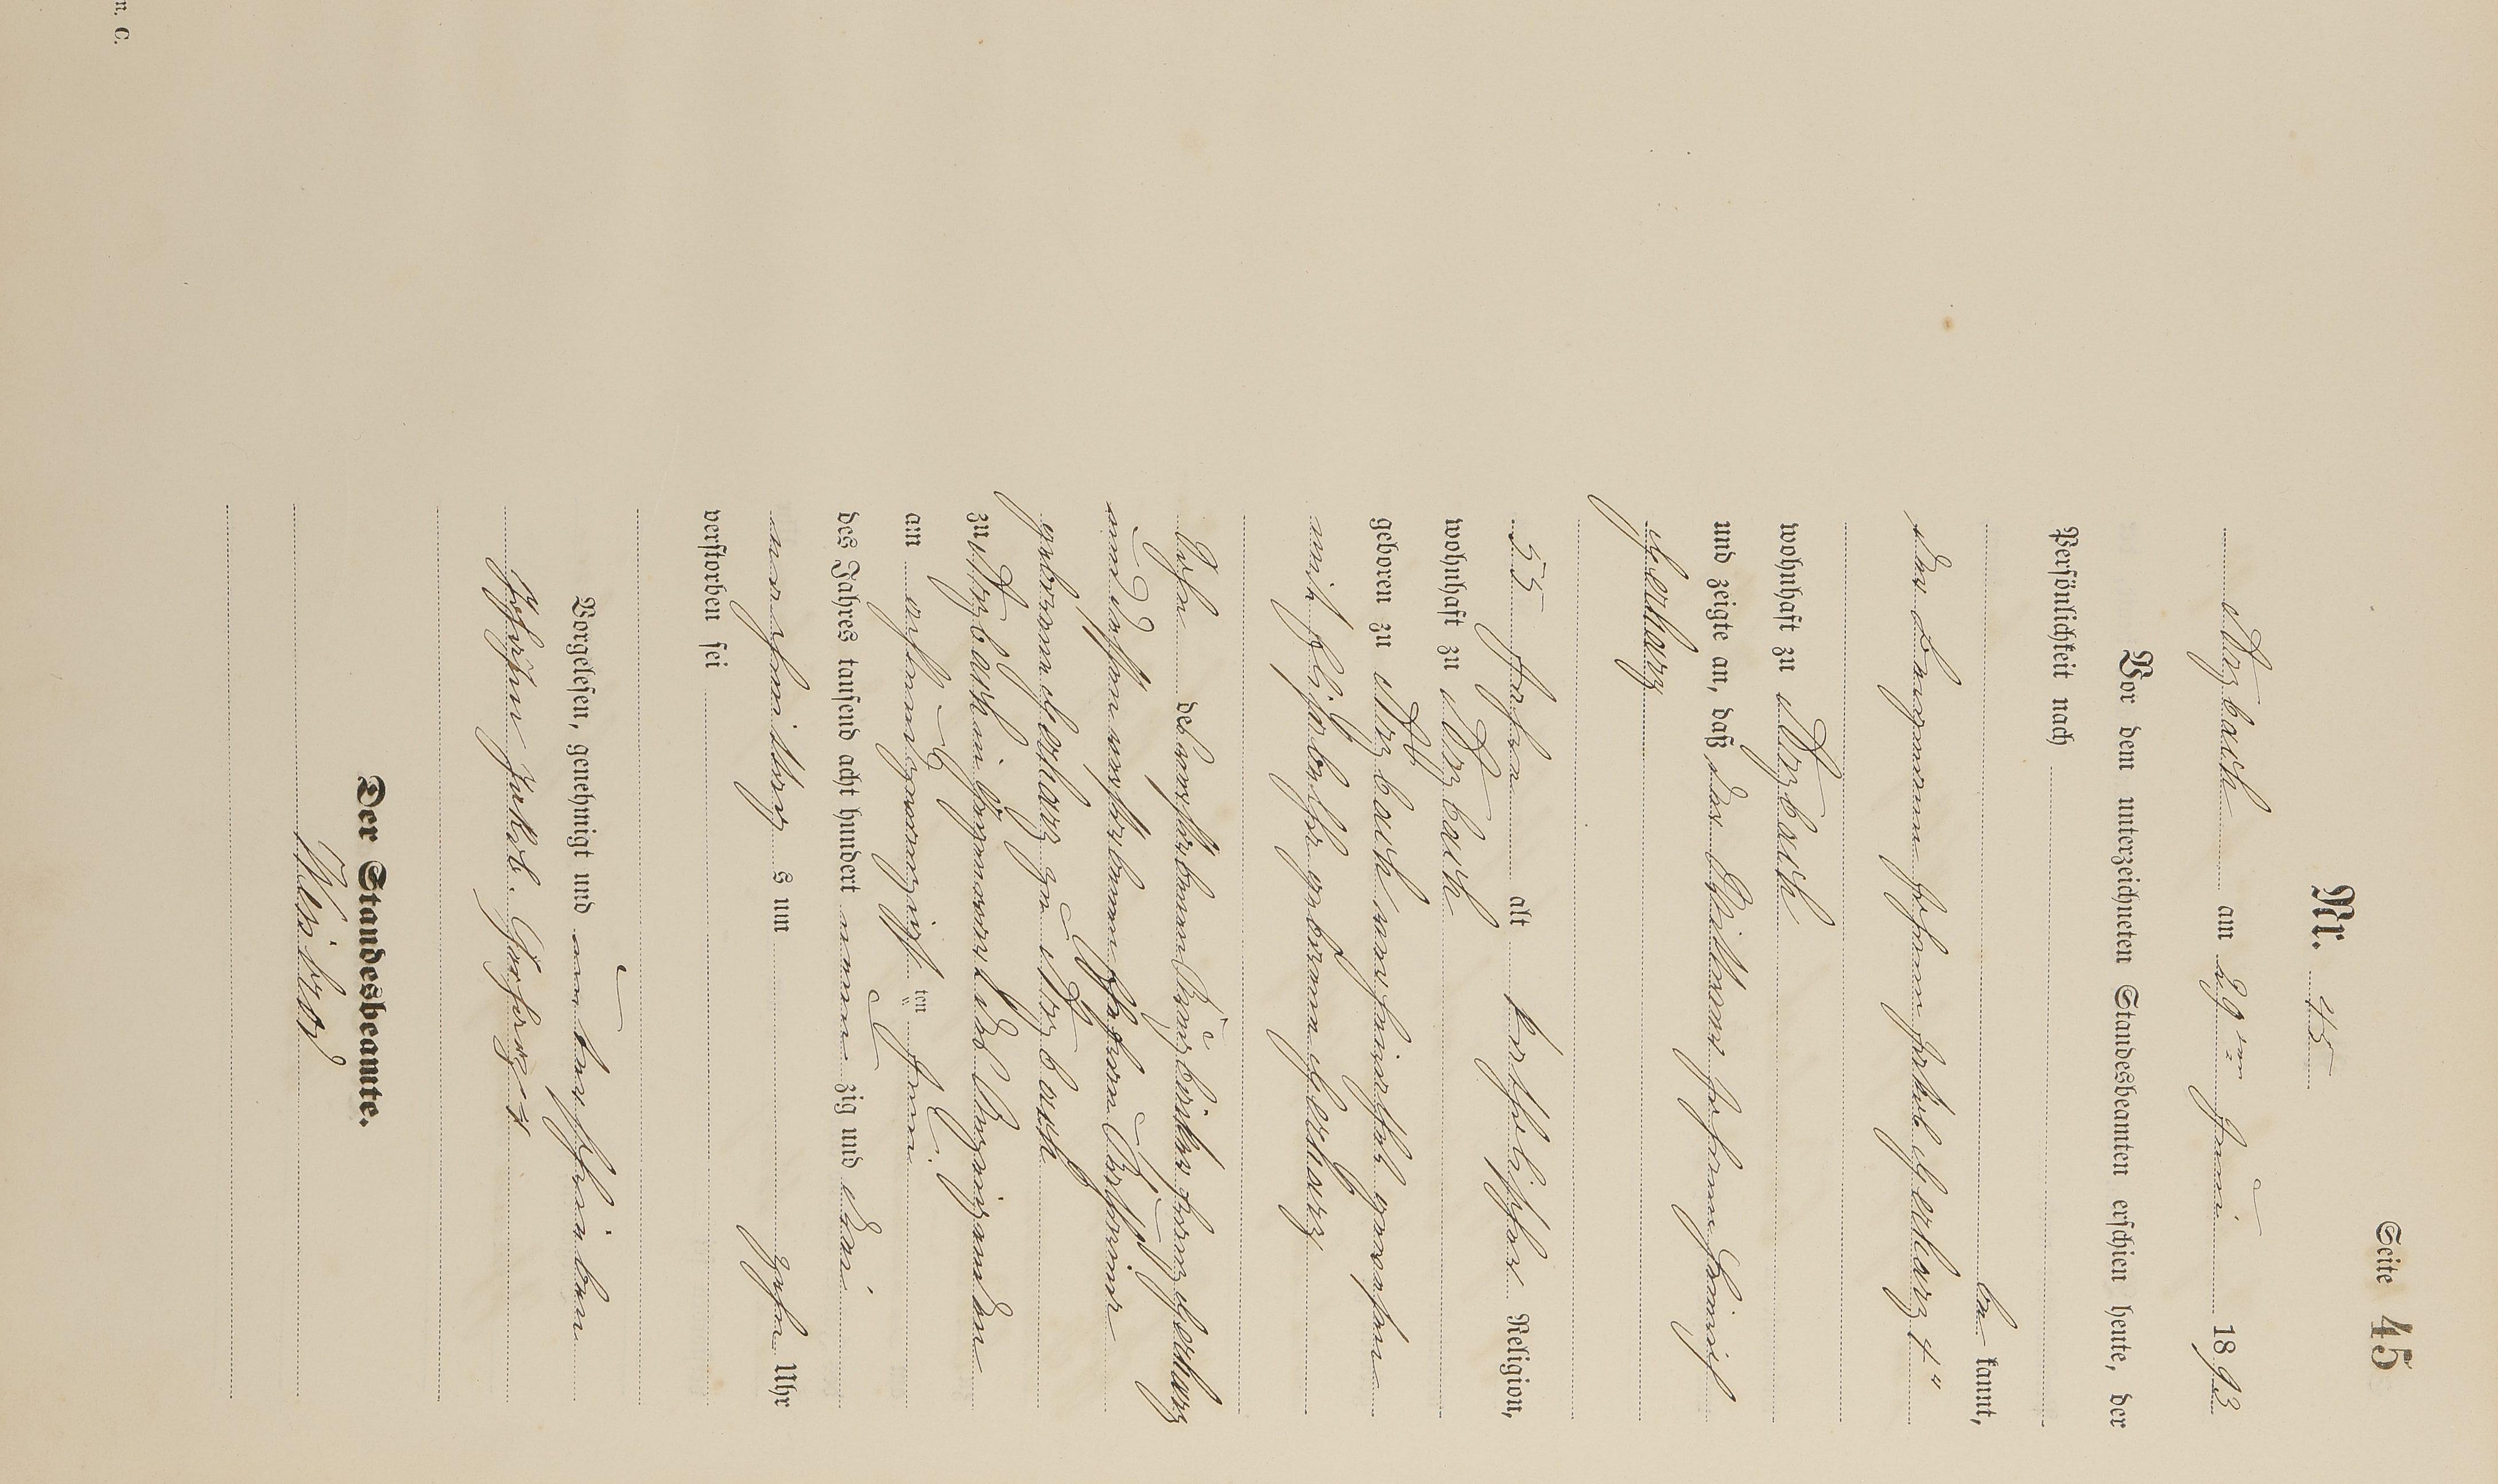 Seite 45
Nr. 45
Arzbach am 29ten Juni 1893
Vor dem unterzeichneten Standesbeamten erschien heute, der
Persönlichkeit nach
be kannt,
der Bergmann Johann Jakob Gerharz 4"
wohnhaft zu Arzbach
und zeigte an, daß der Wittwer Johann
Gerharz
53 Jahre alt katholischer Religion,
wohnhaft zu Arzbach
geboren zu Arzbach verheirathet gewesen
mit Elisabetha geborene Gerharz
Sohn des verstorbenen Franz Gerharz
und dessen verstorbenen Ehefrau Katharina
geborene Gerharz zu Arzbach
zu Arzbach in
am achtundzwanzigsten Juni
des Jahres tausend acht hundert neun zig und drei
nachmittag s um zehn Uhr
verstorben sei
Vorgelesen, genehmigt und unterschrieben
Johann Jakob Gerharz 4
Der Standesbeamte.
n. C.